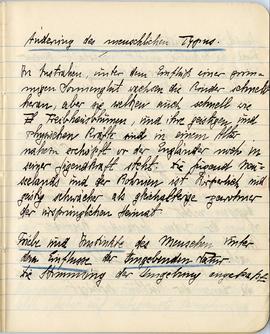 Änderung des menschlichen Typus.
In Australien, unter dem Einfluß einer sonnigen
wachsen die Kinder schnell
heran, aber sie welken auch schnell wie
Treibhausblumen, und ihre geistigen und
physischen Kräfte sind in einem Alter
erschöpft wo der Engländer noch in
seiner Jugendkraft steht. Die Jugend
und der Kolonien ist körperlich und
geistig schwächer als gleichaltrige
der ursprünglichen Heimat
Triebe und Instinkte des Menschen unter
dem Einflusse der umgebenden Natur
die Stimmung der Umgebung angepaßt